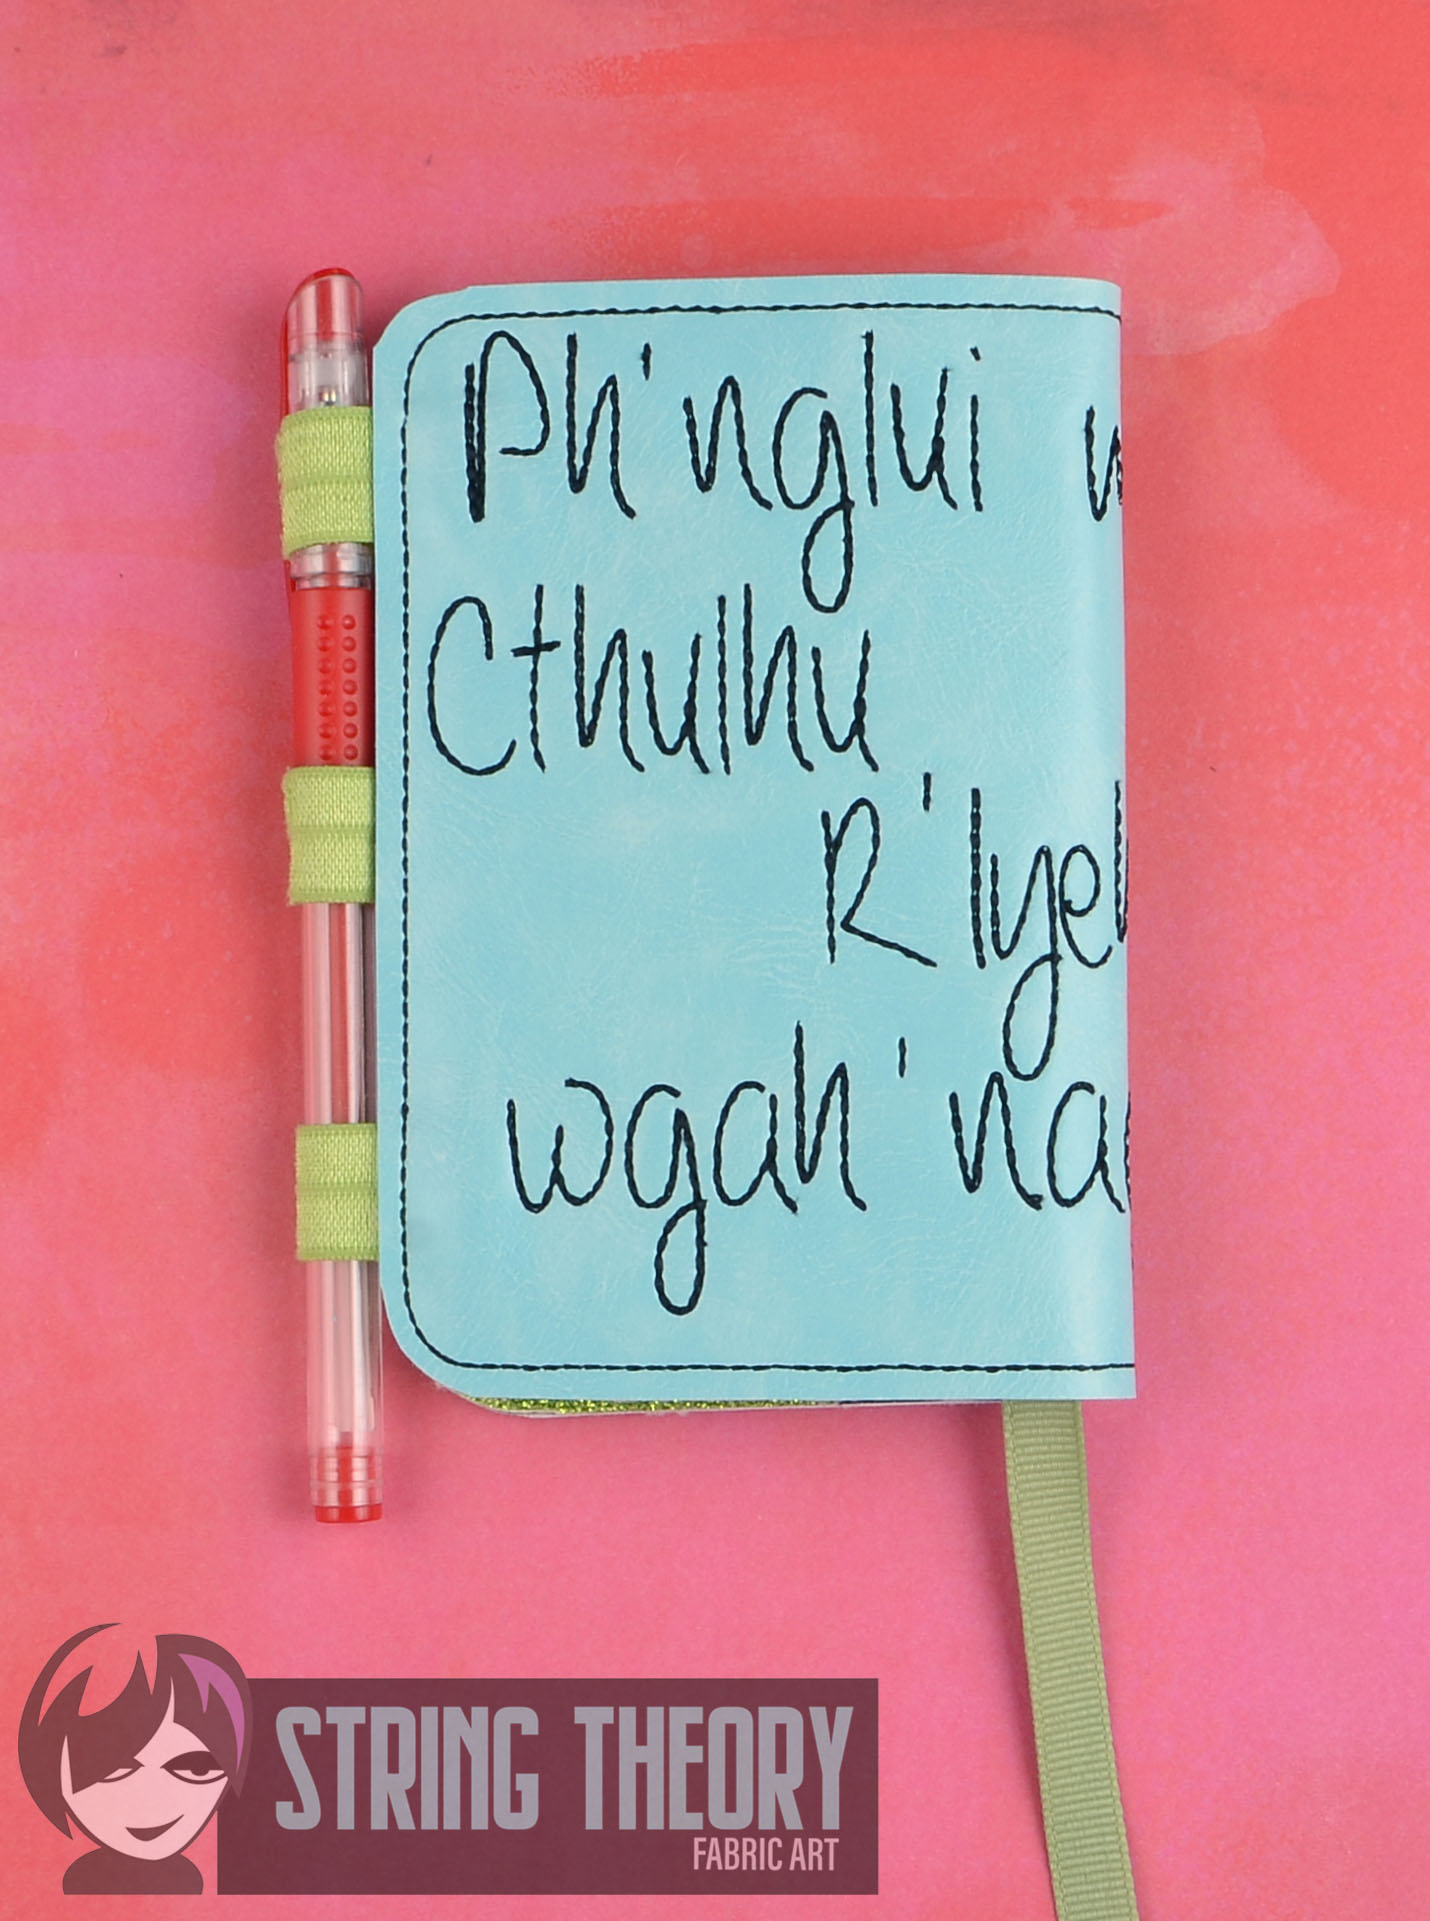 Ph'nglui
Cthulhu
R'lyeh
wgah'na
STRING THEORY
FABRIC ART